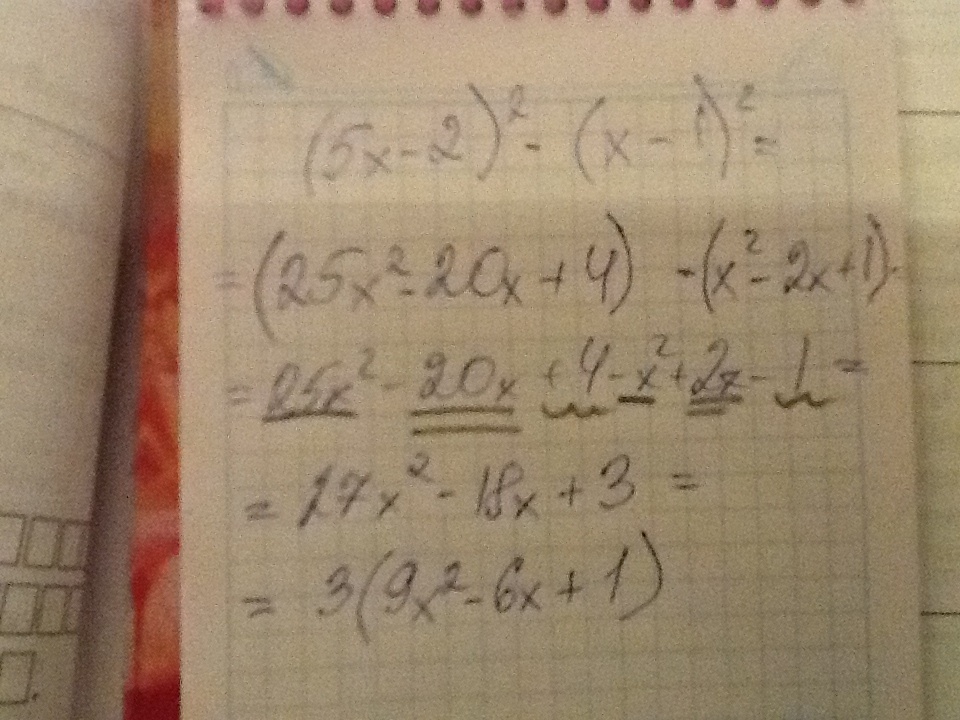 (5x-2)² - (x-1)² =
= (25x²-20x+4) -(x²-2x+1).
= 25x² - 20x + 4 - x² + 2x - 1 =
= 27x² - 18x + 3 =
= 3(9x²-6x+1)